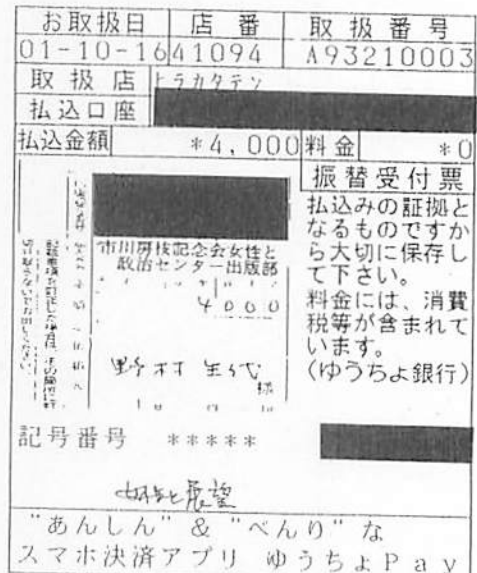 お取扱日 店番 取扱番号
01-10-16 41094 A93210003
取扱店 トラカタテン
払込口座
払込金額 *4,000 料金 *0
振替受付票
払込みの証拠と
なるものですか
ら大切に保存し
て下さい。
料金には、消費
税等が含まれて
います。
(ゆうちょ銀行)
市川房枝記念会女性と
政治センター出版部
4000
野村
様
記号番号 *****
展望
"あんしん"&"べんり"な
スマホ決済アプリ ゆうちょPay